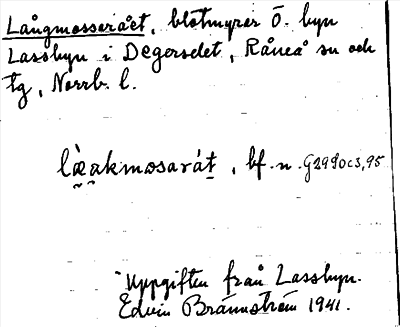 Långmosserået, blötmyrar Ö. byn
Lassbyn i Degerselet, Råneå sn och
tg, Norrb. l.
læ̀akmosarát, bf. n. G2990c3,95
Uppgiften från Lassbyn.
Edvin Brännström 1941.